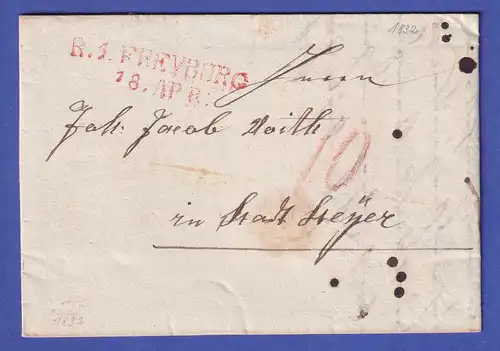 1832
R.1. FREYBURG
18. APR.
Herrn
Joh: Jacob Voith
10
in Stadt Steyer